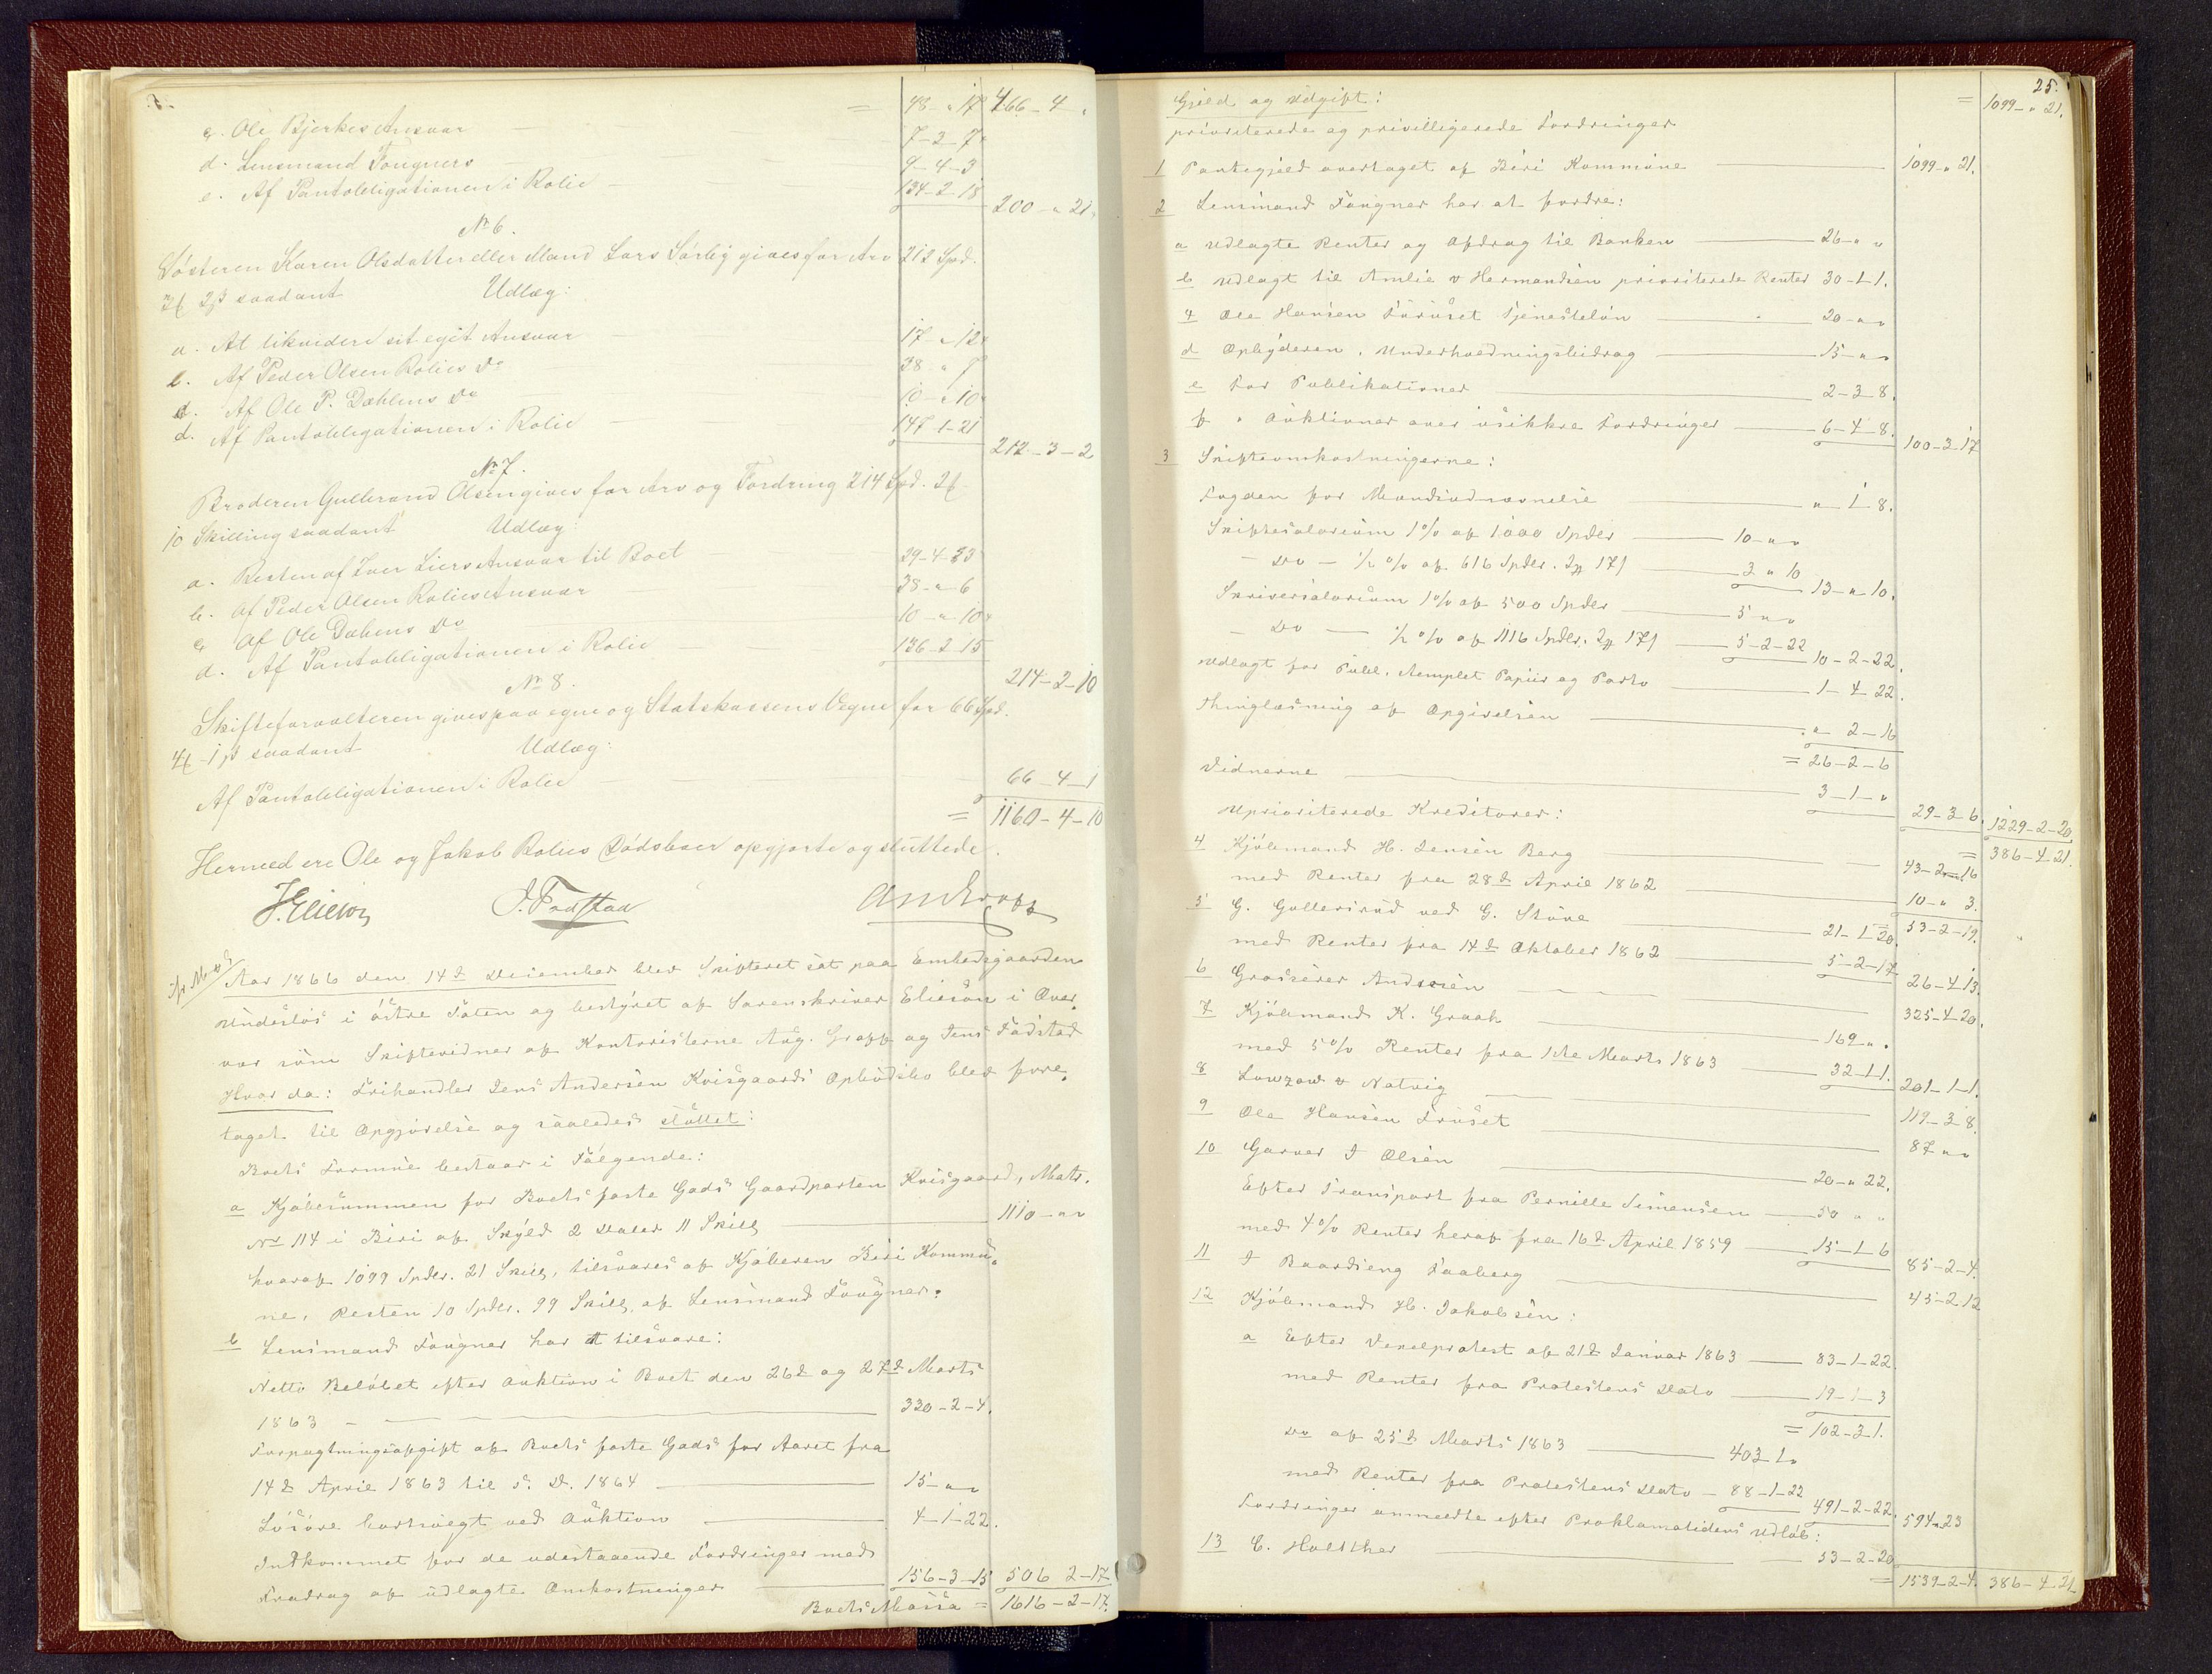 = 48 - " 17 466 - 4 "
c. Ole Bjerkes Ansvar 7-2-7
d. Lensmand Fougners 9-4-3
e. Af Pantobligationen i Rolie 134-2-18
200 - " 21
No 6.
Søsteren Karen Olsdatter eller Mand Lars Sørlig gives for Arv 212 Spd.
3 ₰ 2 β saadant Udlæg:
a. At likvidere sit eget Ansvar 17 - " 12
b. Af Peder Olsen Rolies Do 38 - " 7
c. Af Ole P. Dæhlens Do 10 - " 10
d. Af Pantobligationen i Rolie 147-1-21
212-3-2
No 7.
Broderen Gulbrand Olsen gives for Arv og Fordring 214 Spd. 2 ₰
10 Skilling saadant Udlæg:
a. Resten af Iver Liers Ansvar til Boet 29-4-23
b. Af Peder Olsen Rolies Ansvar 38 - " - 6
c. Af Ole Dæhlens Do 10 - " - 10
d. Af Pantobligationen i Rolie 136-2-15
214-2-10
No 8.
Skifteforvalteren gives paa egne og Statskassens Vegne for 66 Spd.
4 ₰ 1 β saadant Udlæg:
Af Pantobligationen i Rolie 66-4-1
= 1160-4-10
Hermed ere Ole og Jakob Rolies Dødsboer opgjorte og sluttede.
J. Fodstad
Aar 1866 den 14d December blev Skifteret sat paa Embedsgaarden
Undeslos i østre Toten og bestyret af Sorenskriver Elieson i Over-
vær som Skiftevidner af Kontoristerne Aug. Grapp og Jens Fodstad
Hvor da: Frihandler Jens Andersen Kvisgaards Opbudsbo blev fore-
taget til Opgjørelse og saaledes sluttet:
Boets Formue bestaar i Følgende:
a Kjøbesummen for Boets faste Gods Gaardparten Kvisgaard, Matr.
No 114 i Biri af Skyld 2 Daler 11 Skill 1110 - " "
hvoraf 1099 Spdlr. 21 Skill, tilsvares af Kjøberen Biri Kommu-
ne, Resten 10 Spdlr. 99 Skill, af Lensmand Fougner.
b Lensmand Fougner har at tilsvare:
Netto Beløbet efter Auktion i Boet den 26d og 27d Marts
1863 - 330-2-4.
Forpagtningsafgift af Boets faste Gods for Aaret fra
14d April 1863 til s. D. 1864 15 - " "
Løsøre bortsolgt ved Auktion 4-1-22.
Indkommet for de udestaaende Fordringer med
Fradrag af udlagte Omkostninger 156-3-15 506 2-17
Boets Massa = 1616-2-17.
25.
Gjeld og Udgift: = 1099 - " 21.
prioriterede og privilligerede Fordringer
1 Pantegjeld overtaget af Biri Kommune 1099 - " 21.
2 Lensmand Fougner har at fordre:
a Udlagte Renter og Afdrag til Banken 26 - " "
b Udlagt til Amlie v Hermandsen prioriterede Renter 30-1-1.
c Ole Hansen Fruset Tjenesteløn 20 - " "
d Opbyderen, Underholdningsbidrag 15 - " "
e For Publikationer 2-3-8.
f " Auktioner over usikkre Fordringer 6-4-8. 100-3-17
3 Skifteomkostningerne:
Fogden for Mandsudnævnelse " 1 8.
Skiftesalarium 1% af 1000 Spdler 10 - " "
- Do - ½% af 616 Spdler. 2 ₰ 17 β 3 " 10 13 - " 10.
Skriversalarium 1% af 500 Spdler 5 " "
- Do - ½% af 1116 Spdler. 2 ₰ 17 β 5-2-22 10-2-22.
Udlagt for Publ. stemplet Papiir og Porto 1-4-22.
Thinglæsning af Opgivelsen " 2-16
= 26-2-6
Vidnerne 3-1-" 29-3-6. 1229-2-20
Uprioriterede Kreditorer: = 386-4-21.
4 Kjøbmand H. Jensen Berg 43-2-16
med Renter fra 28d April 1862 10 - " 3.
53-2-19.
5 G. Gullerirud ved G. Skøne 21-1-20.
med Renter fra 14d Oktober 1862 5-2-17 26-4-13.
6 Grosserer Andersen 325-4-20.
7 Kjøbmand K. Graah 169 " "
med 5% Renter fra 1ste Marts 1863 32-1-1. 201-1-1.
8 Lowzow v Natvig 119-3-8.
9 Ole Hansen Fruset 87 " "
10 Garver J Olsen 20 - " 22.
Efter Transport fra Pernille Simensen 50 " "
med 4% Renter heraf fra 16d April 1859 15-1-6 85-2-4.
11 J Baardseng Faaberg 45-2-12
12 Kjøbmand H. Jakobsen:
a Efter Vexelprotest af 21d Januar 1863 83-1-22.
med Renter fra Protestens Dato 19-1-3
= 102-3-1.
Do af 25d Marts 1863 403 1 "
med Renter fra Protestens Dato - 88-1-22 491-2-22. 594 " 23
Fordringer anmeldte efter Proklamatidens Udløb:
13 C. Holsther 53-2-20
= 1539-2-4. 386-4-21